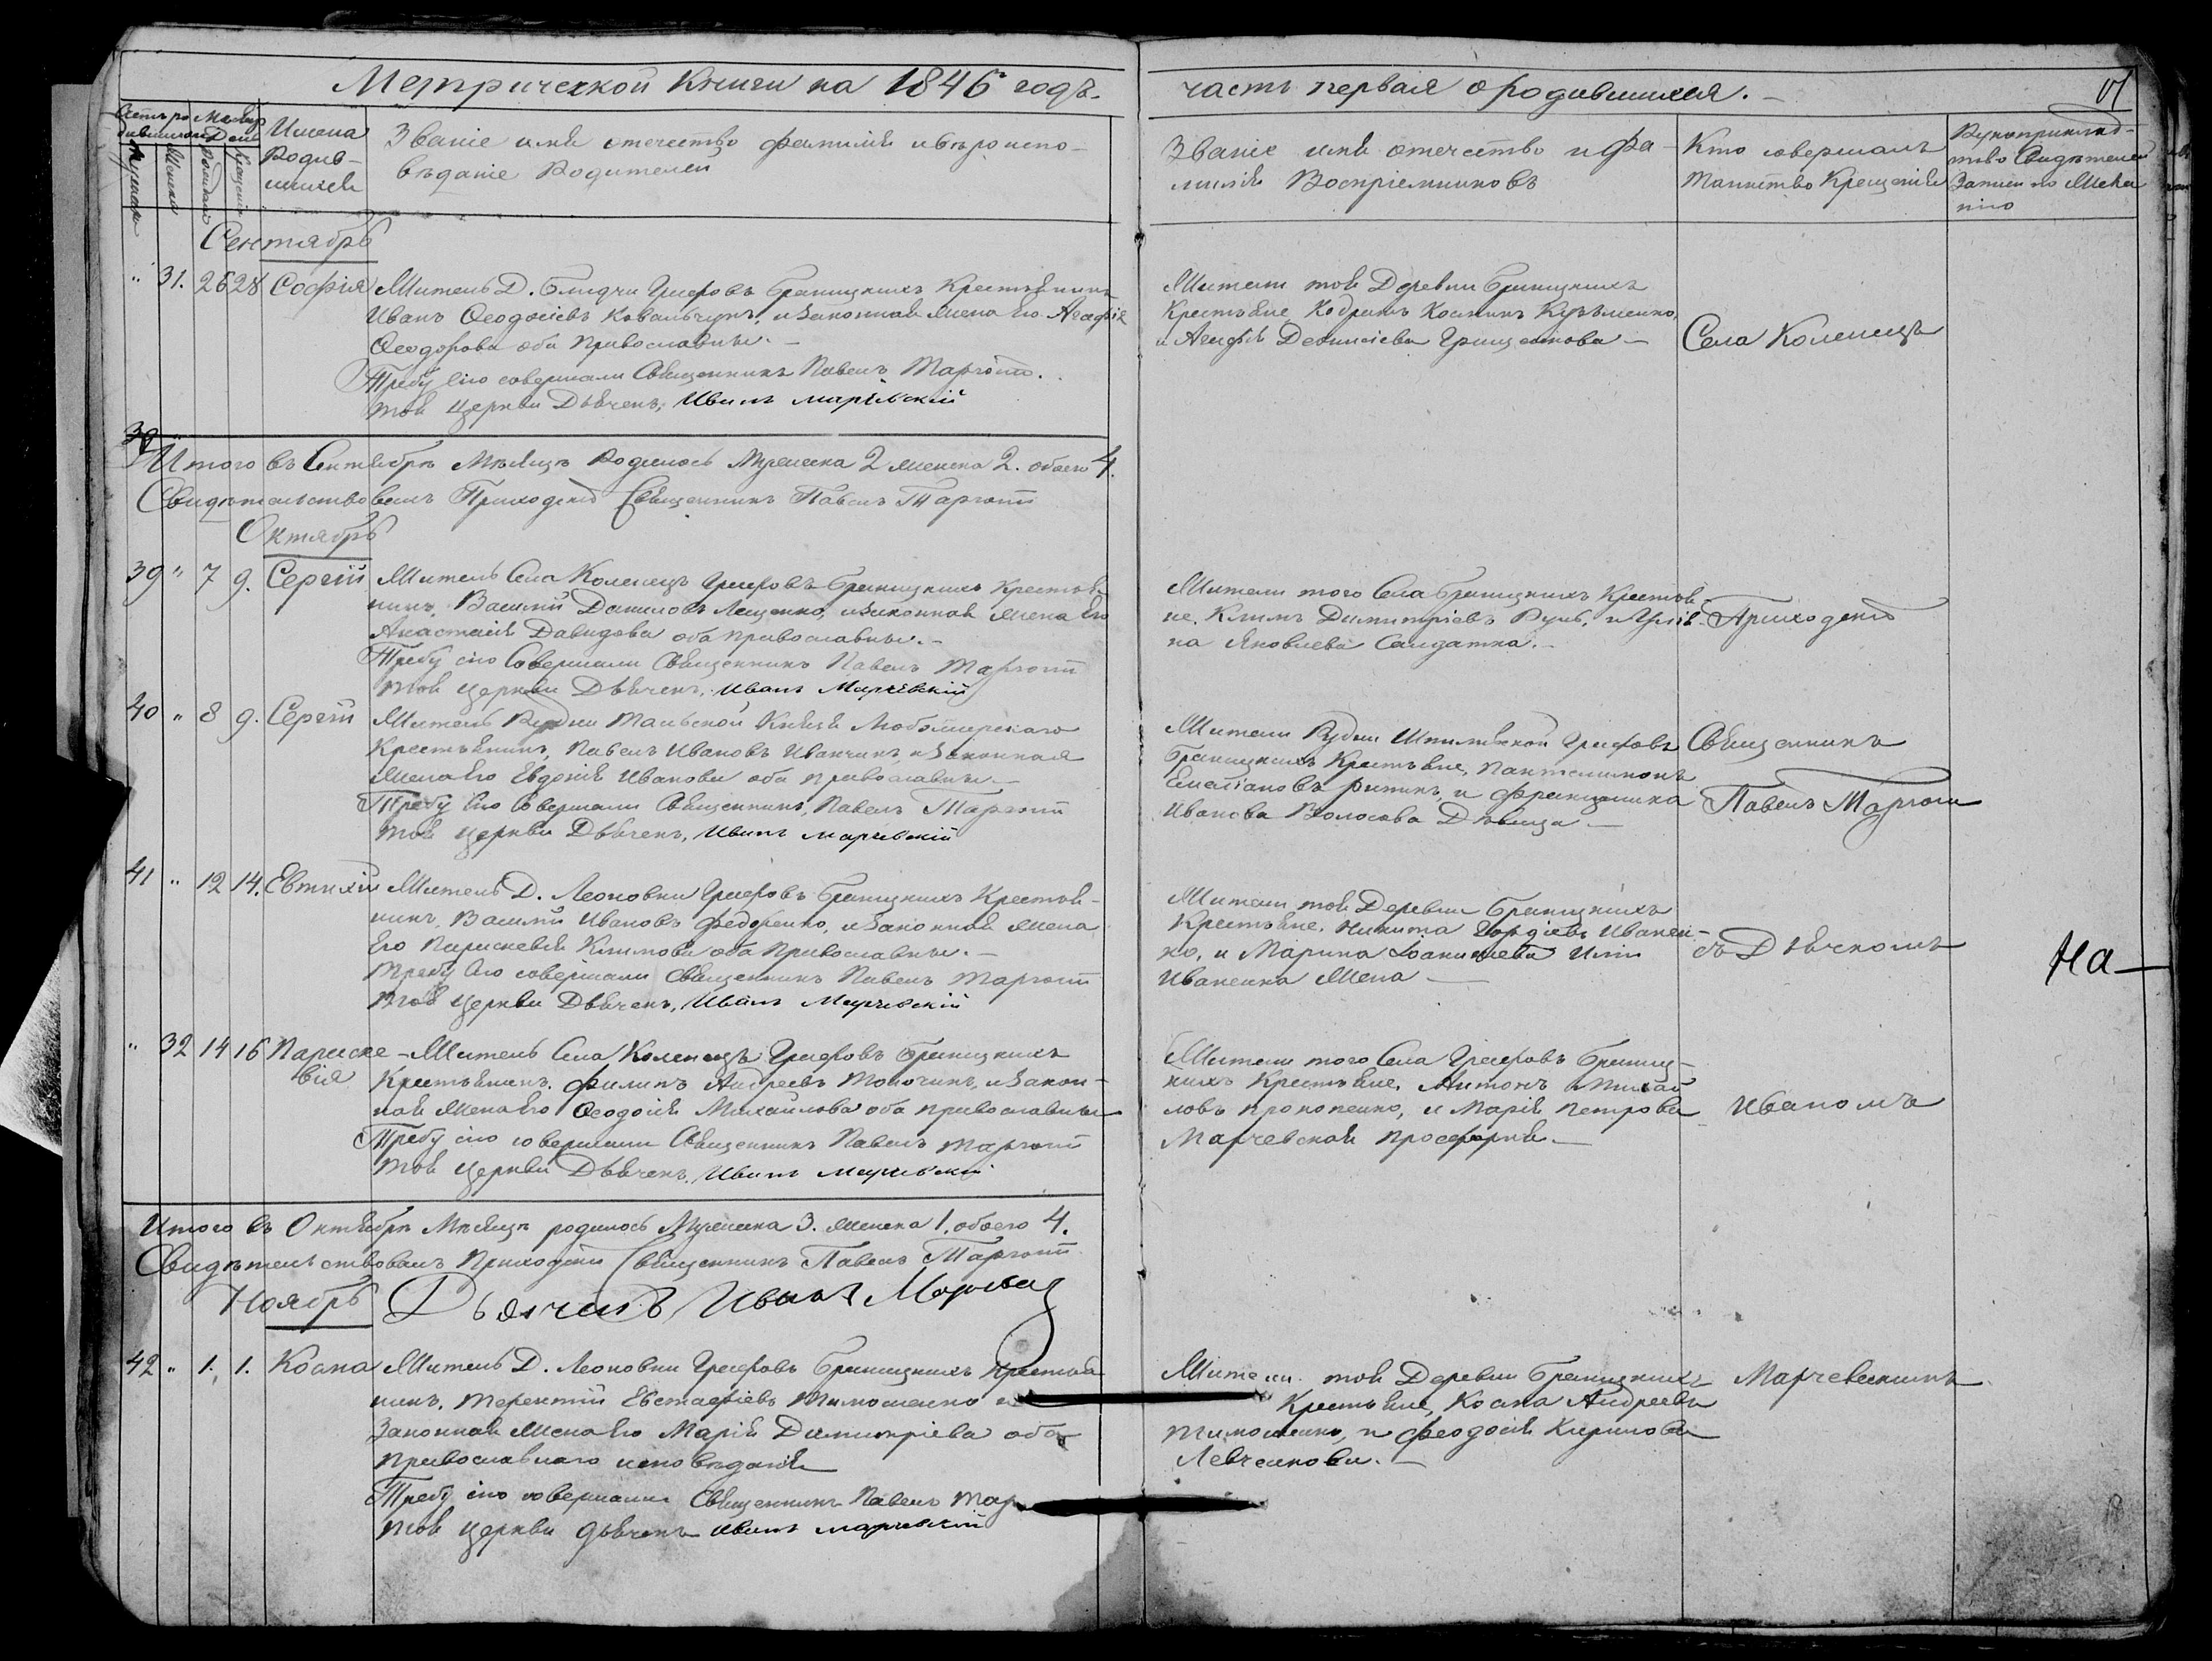 Метрической Книги на 1846 годъ.
часть первая о родившихся.
Имена
Родив-
шихся
Званіе имя отечество фамилія и вѣроиспо-
вѣданіе Родителей
Званіе имя отечество и Фа-
милія Воспріемниковъ
Кто совершалъ
таинство Крещенія
Сентябрь
" 31. 26 28 Софія Житель Д. Блидчи Графовъ Браницкихъ Крестьянинъ
Иванъ Ѳеодосіевъ Ковальчукъ, и законная жена его Агафія
Ѳеодорова оба Православные.
Требу сію совершали Священникъ Павелъ
той Церкви Дьячекъ, Иванъ Марчевскій
Жители той Деревни Браницкихъ
Крестьяне Кодратъ Козминъ Кузьменко,
и Агафія Денисіева Грищенкова
Села Коленецъ
Итого въ Сентябрѣ Мѣсяцѣ Родилось Мужеска 2 женска 2. обоего 4.
Свидѣтельствовалъ Приходскій Священникъ Павелъ
Октябрь
39 " 7 9. Сергій Житель Села Коленецъ Графовъ Браницкихъ Крестья-
нинъ, Василій Даниловъ Лещенко, и законная жена его
Анастасія Давидова оба православные.
Требу сію Совершали Священникъ Павелъ
той Церкви Дьячекъ, Иванъ Марчевскій
Жители того Села Браницкихъ Крестья-
не, Климъ Димитріевъ и
на Яковлева Солдатка.
Приходскій
40 " 8 9. Сергій Житель Рудни Тальской Князя Любомирскаго
Крестьянинъ, Павелъ Ивановъ Иванчинъ, и законная
жена его Евдокія Иванова оба православные
Требу сію совершали Священникъ, Павелъ
той Церкви Дьячекъ, Иванъ Марчевскій
Жители Рудни Шпилевской Графовъ
Браницкихъ Крестьяне, Пантелимонъ
Емеліановъ и
Иванова Волосова Дѣвица
Священникъ
Павелъ
41 " 12 14. Евтихій Житель Д. Леоновки Графовъ Браницкихъ Крестья-
нинъ, Василій Ивановъ Федоренко, и законная жена
его Параскевія Климова оба Православные.
Требу сію совершали Священникъ Павелъ
той Церкви Дьячекъ, Иванъ Марчевскій
Жители той Деревни Браницкихъ
Крестьяне, Никита Гордіевъ Иванен-
ко, и Марина
Иваненка жена
съ Дьячкомъ
На
" 32 14 16 Параске- Житель Села Коленецъ Графовъ Браницкихъ
вія Крестьянинъ, Филипъ Андреевъ Толочинъ, и закон-
ная жена его Ѳеодосія Михайлова оба православные
Требу сію совершали Священникъ Павелъ
той Церкви Дьячекъ, Иванъ Марчевскій
Жители того Села Графовъ Браниц-
кихъ Крестьяне, Антонъ Михай
ловъ Прокопенко, и Марія Петрова
Марчевская просфорня.
Иваномъ
Итого въ Октябрѣ Мѣсяцѣ родилось Мужеска 3. женска 1. обоего 4.
Свидѣтельствовалъ Приходскій Священникъ Павелъ
Ноябрь Дьячекъ Иванъ
42 " 1. 1. Косма Житель Д. Леоновки Графовъ Браницкихъ Крестья
нинъ, Терентій Евстафіевъ Тимошенко и
Законная жена его Марія Димитріева оба
Православнаго исповѣданія
Требу сію совершали Священникъ Павелъ
той Церкви дьячекъ Иванъ Марчевскій
Жители той Деревни Браницкихъ
Крестьяне, Косма Андреевъ
Тимошенко, и Феодосія Кирилова
Левченкова.
Марчевскимъ